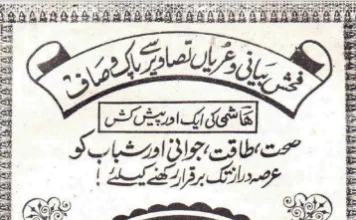 فحش بیانی و عریاں تصاویر سے پاک و صاف
هاشمی کی ایک اور پیش کش
صحت، طاقت، جوانی اور شباب کو
عرصہ دراز تک برقرار رکھنے کیلئے!